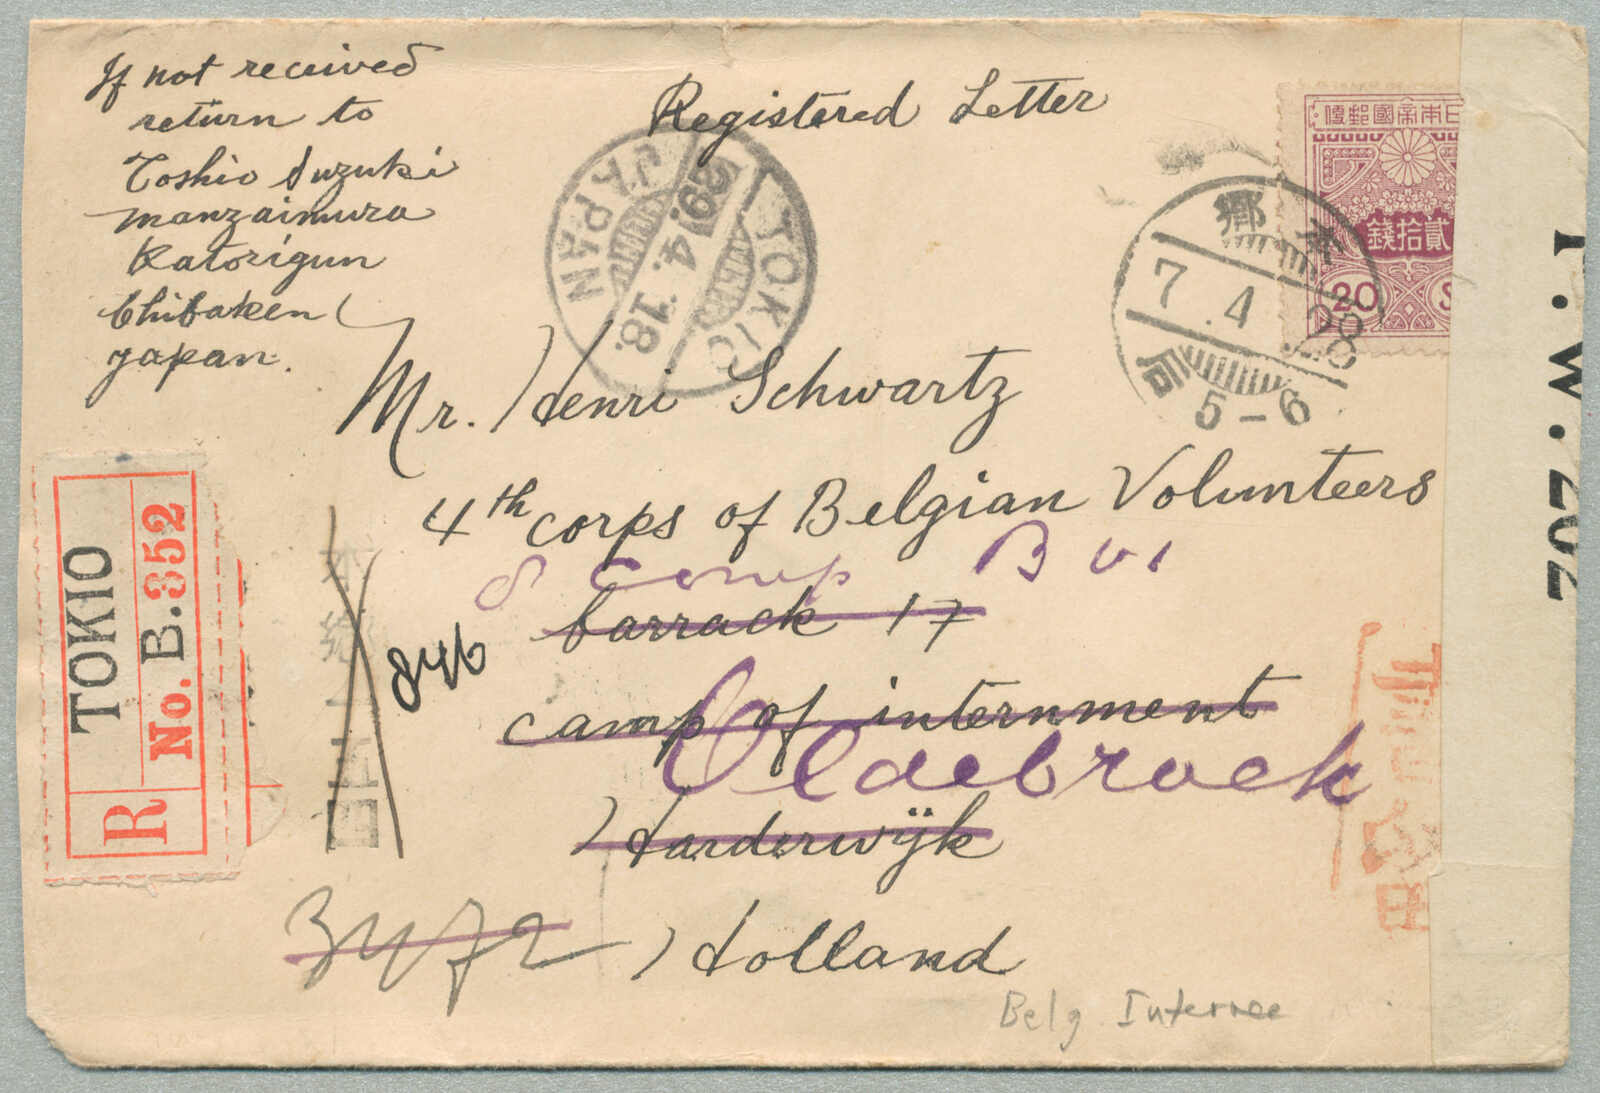 If not received
return to
Toshio Suzuki
Manzaimura
Katorigun
Chibaken
Japan.
Registered Letter
TOKIO
29.4.18.
JAPAN
便郵國帝本日
錢拾貳
20 S
本郷
7.4
5-6
Mr. Henri Schwartz
4th corps of Belgian Volunteers
8 Comp B
barrack 17
846
camp of internment
Oldebroek
Harderwijk
3472
Holland
Belg Internee
R
TOKIO
No. B.352
.W.202